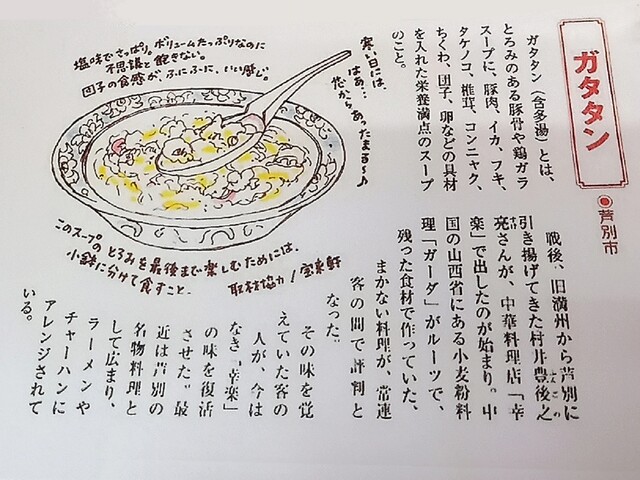 ガタタン
芦別市
ガタタン(含多湯)とは、
とろみのある豚骨や鶏ガラ
スープに、豚肉、イカ、フキ、
タケノコ、椎茸、コンニャク、
ちくわ、団子、卵などの具材
を入れた栄養満点のスープ
のこと。
寒い日には、
はあ…
芯からあったまる〜♪
塩味でさっぱり。ボリュームたっぷりなのに
不思議と飽きない。
団子の食感が、ふにふに、いい感じ。
このスープのとろみを最後まで楽しむためには、
小鉢に分けて食すこと。
取材協力/宝来軒
戦後、旧満州から芦別に
引き揚げてきた村井豊後之
ぶんごの
亮さんが、中華料理店「幸
楽」で出したのが始まり。中
国の山西省にある小麦粉料
理「ガーダ」がルーツで、
残った食材で作っていた、
まかない料理が、常連
客の間で評判と
なった。
その味を覚
えていた客の
人が、今は
なき「幸楽」
の味を復活
させた。最
近は芦別の
名物料理と
して広まり、
ラーメンや
チャーハンに
アレンジされて
いる。